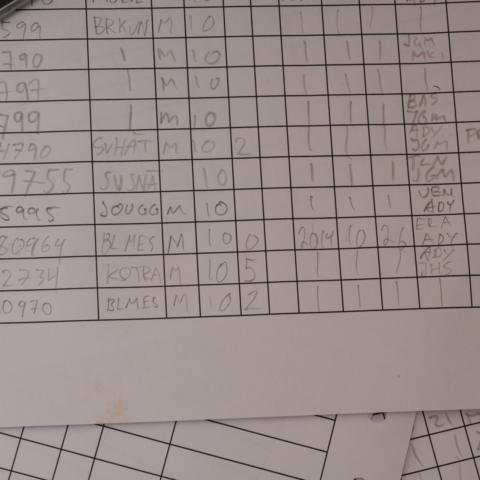 599 BRKUN M 10 | | | |
790 | M 10 | | | JGM
MK1
797 | M 10 | | | |
799 | M 10 | | | BAS
JGM
4790 SVHAT M 10 2 | | | ADY
JGM
9755 SVSNA 10 | | | JGM
5995 JOUGG M 10 | | | VEN
ADY
80964 BLMES M 10 0 2014 10 26 ERA
ADY
2734 KOTRA M 10 5 | | | ADY
JHS
0970 BLMES M 10 2 | | | |
21